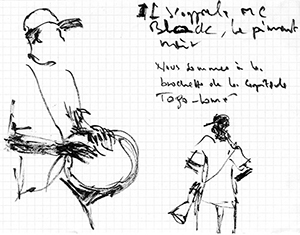 Il s'appelle MC
Blonde, le piment
noir
Nous sommes à la
brochette de la capitale
Togo-Lomé